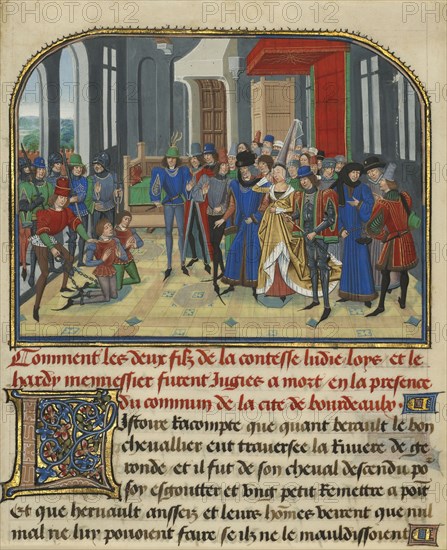 Comment les deux filz de la contesse ludie loys et le
hardy mennessier furent Jugies a mort en la presence
du commun de la cite de bourdeaulx
L Istoire Racompte que quant berault le bon
chevallier eut traversee la Riviere de ge
ronde et il fut de son cheval descendu po
soy esgoutter et ung petit Remettre a poit
Et que hernault anssers et leurs hommes veirent que nul
mal ne luy pouoient faire se ilz ne le mauldissoient